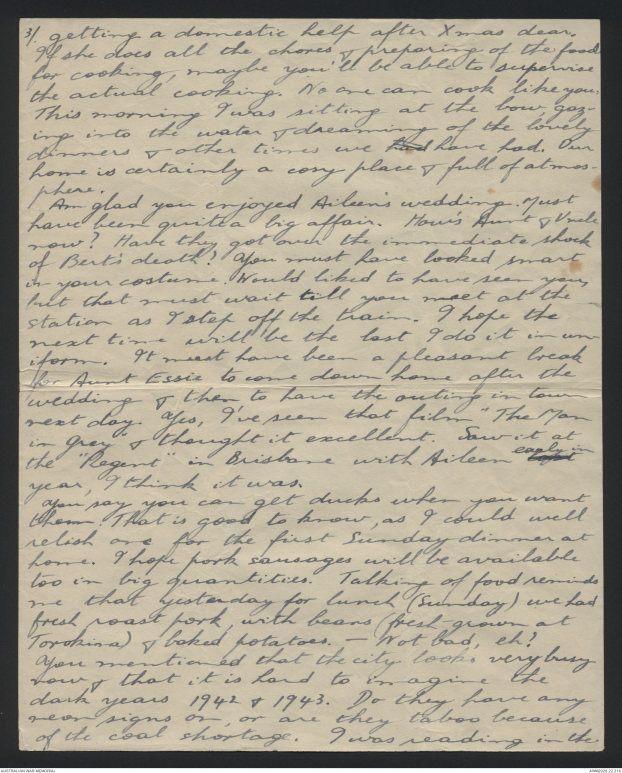 3/. getting a domestic help after Xmas dear.
If she does all the chores & preparing of the food
for cooking, maybe you'll be able to supervise
the actual cooking. No one can cook like you.
This morning I was sitting at the bow, gaz-
ing into the water & dreaming of the lovely
dinners & other times we had have had. Our
home is certainly a cosy place & full of atmos-
phere.
Am glad you enjoyed Aileen's wedding. Must
have been quite a big affair. How's Aunt & Uncle
now? Have they got over the immediate shock
of Bert's death? You must have looked smart
in your costume. Would liked to have seen you,
but that must wait till you meet at the
station as I step off the train. I hope the
next time will be the last I do it in un-
iform. It must have been a pleasant break
for Aunt Essie to come down home after the
wedding & then to have the outing in town
next day. Yes, I've seen that film "The Man
in grey" & thought it excellent. Saw it at
the "Regent" in Brisbane with Aileen early in
year, I think it was.
You say you can get ducks when you want
them. That is good to know, as I could well
relish one for the first Sunday dinner at
home. I hope pork sausages will be available
too in big quantities. Talking of food reminds
me that yesterday for lunch (Sunday) we had
fresh roast pork, with beans (fresh grown at
Torokina) & baked potatoes. — Not bad, eh?
You mentioned that the city looks very busy
now & that it is hard to imagine the
dark years 1942 & 1943. Do they have any
neon signs on, or are they taboo because
of the coal shortage. I was reading in the
AUSTRALIAN WAR MEMORIAL